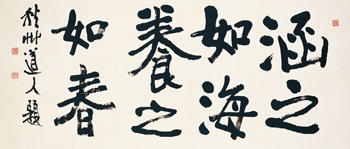 涵之
如海
養之
如春
道人題